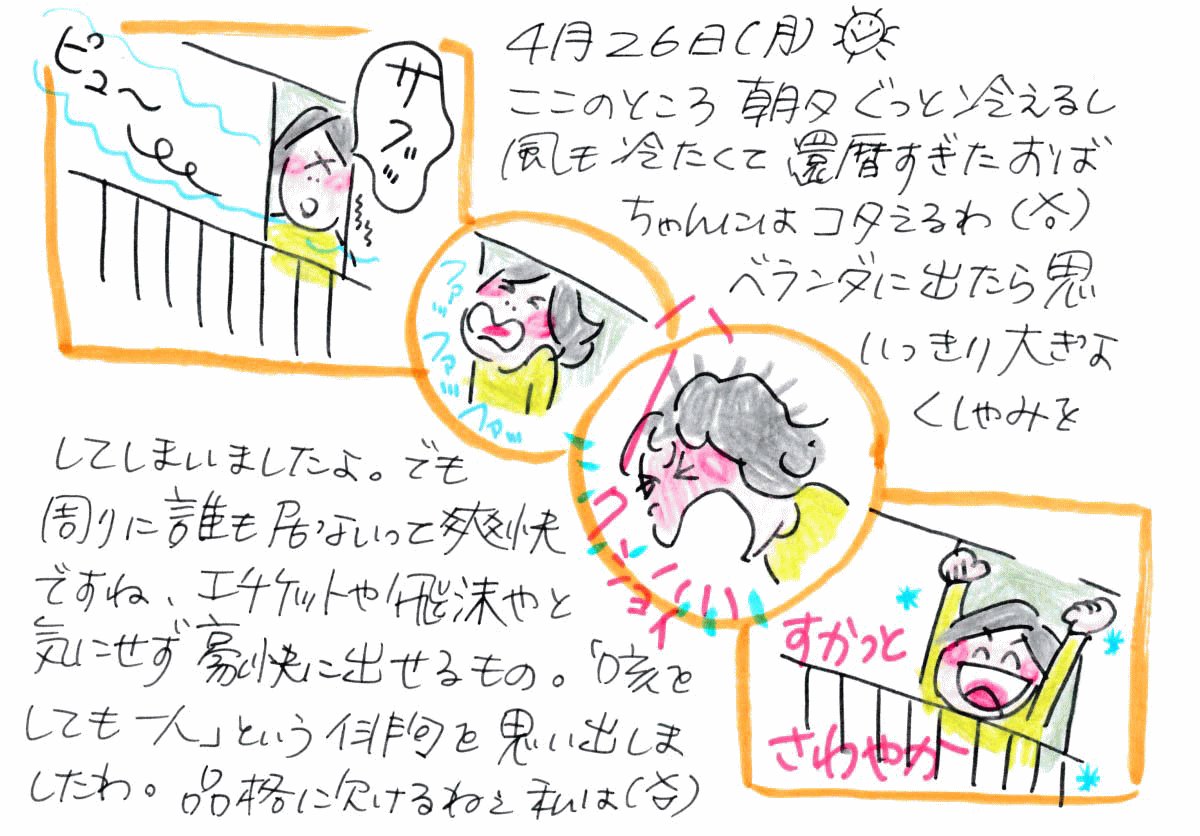 4月26日(月)
ここのところ 朝夕 ぐっと冷えるし
風も冷たくて 還暦すぎたおば
ちゃんにはコタえるわ(笑)
ベランダに出たら思
いっきり大きな
くしゃみを
してしまいましたよ。でも
周りに誰も居ないって爽快
ですね、エチケットや飛沫やと
気にせず豪快に出せるもの。「咳を
しても一人」という俳句を思い出しま
したわ。品格に欠けるねと私は(笑)
ピュ〜
サブ〜
ファッ
ファッ
ファッ
ハックショイ
すかっと
さわやかー